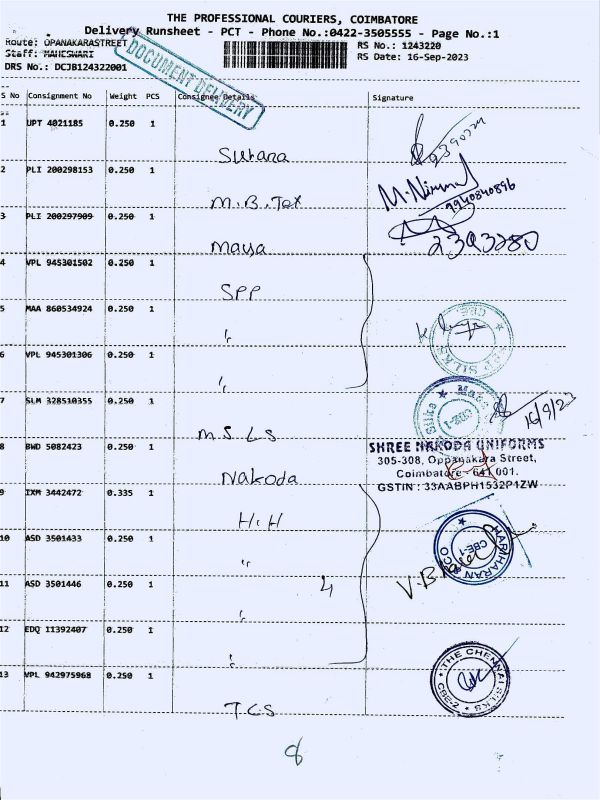 THE PROFESSIONAL COURIERS, COIMBATORE
Delivery Runsheet - PCT - Phone No.:0422-3505555 - Page No.:1
Route: OPANAKARASTREET
RS No.: 1243220
Staff: MAHESWARI
RS Date: 16-Sep-2023
DRS No.: DCJB124322001
DOCUMENT DELIVERY
S No Consignment No Weight PCS Consignee Details Signature
1 UPT 4021185 0.250 1
Surana
2 PLI 200298153 0.250 1
M.B.Tex
9940840896
3 PLI 200297909 0.250 1
Maya
2393280
4 VPL 945301502 0.250 1
SPP
5 MAA 860534924 0.250 1
"
6 VPL 945301306 0.250 1
"
7 SLM 328510355 0.250 1
16/9/23
M.S.LS
8 BWD 5082423 0.250 1
SHREE NAKODA UNIFORMS
305-308, Oppanakara Street,
Coimbatore - 641 001.
GSTIN : 33AABPH1532P1ZW
Nakoda
9 IXM 3442472 0.335 1
H.H
10 ASD 3501433 0.250 1
HARIHARAN
CBE-1
"
11 ASD 3501446 0.250 1
4
"
12 EDQ 11392407 0.250 1
"
13 VPL 942975968 0.250 1
THE CHENNAI SILKS
CBE-2
T.C.S
8